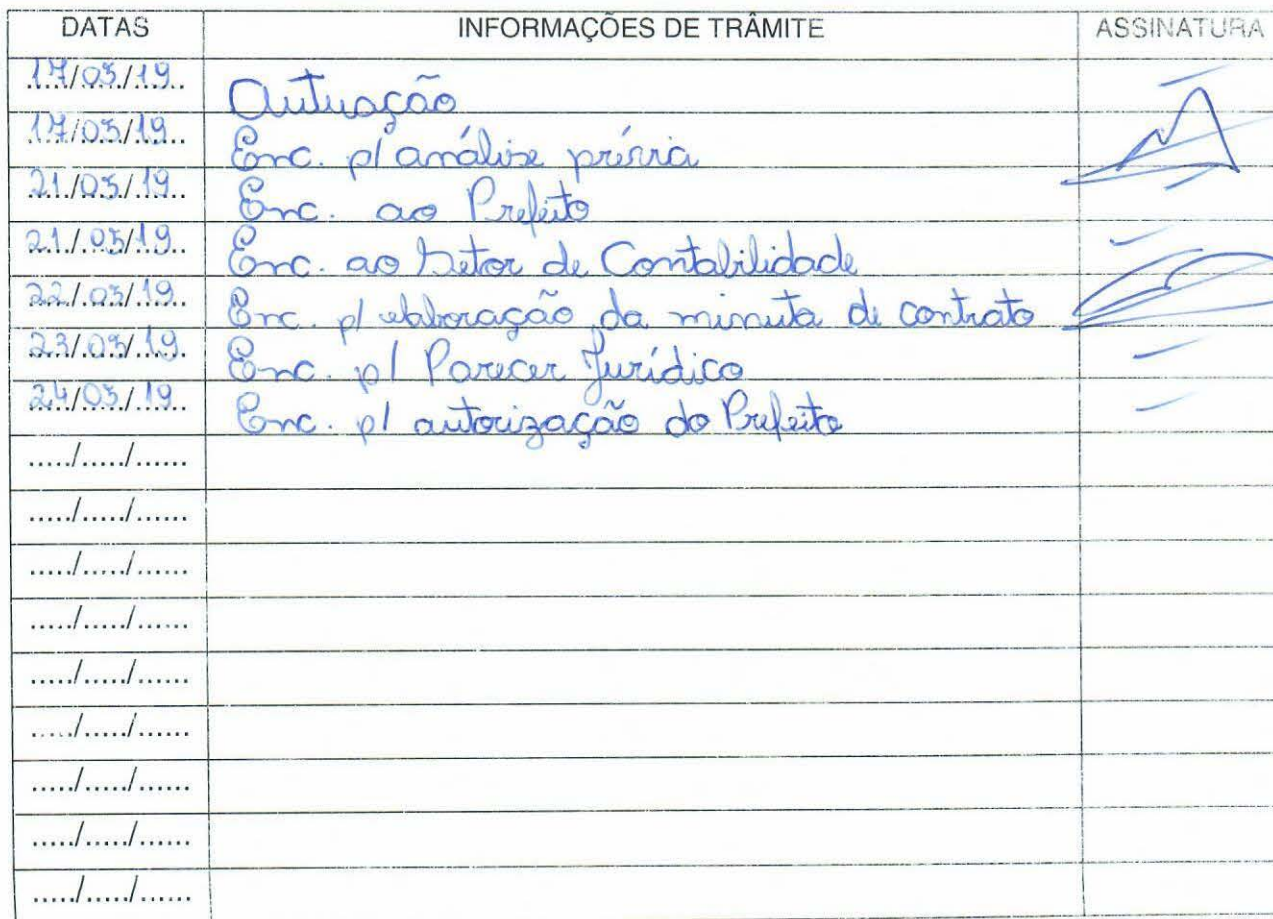 DATAS INFORMAÇÕES DE TRÂMITE ASSINATURA
17/05/19 Autuação
17/05/19 Enc. p/ análise prévia
21/05/19 Enc. ao Prefeito
21/05/19 Enc. ao Setor de Contabilidade
22/05/19 Enc. p/ elaboração da minuta de contrato
23/05/19 Enc. p/ Parecer Jurídico
24/05/19 Enc. p/ autorização do Prefeito
...../...../......
...../...../......
...../...../......
...../...../......
...../...../......
...../...../......
...../...../......
...../...../......
...../...../......